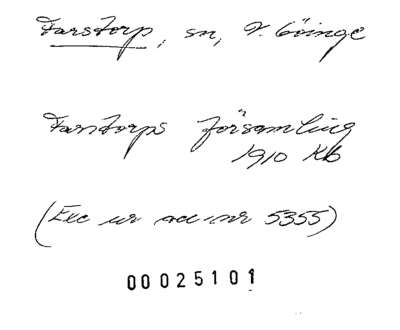 Farstorp, sn, V. Göinge
Farstorps församling
1910 Kb
(Exc ur acc.nr 5355)
00025101